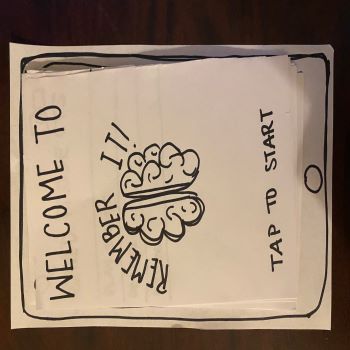 WELCOME TO
REMEMBER IT!
TAP TO START